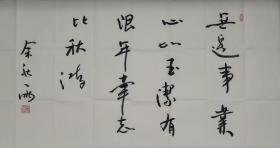 無邊事業
心玉潔有
限年華志
比秋鴻
余秋雨